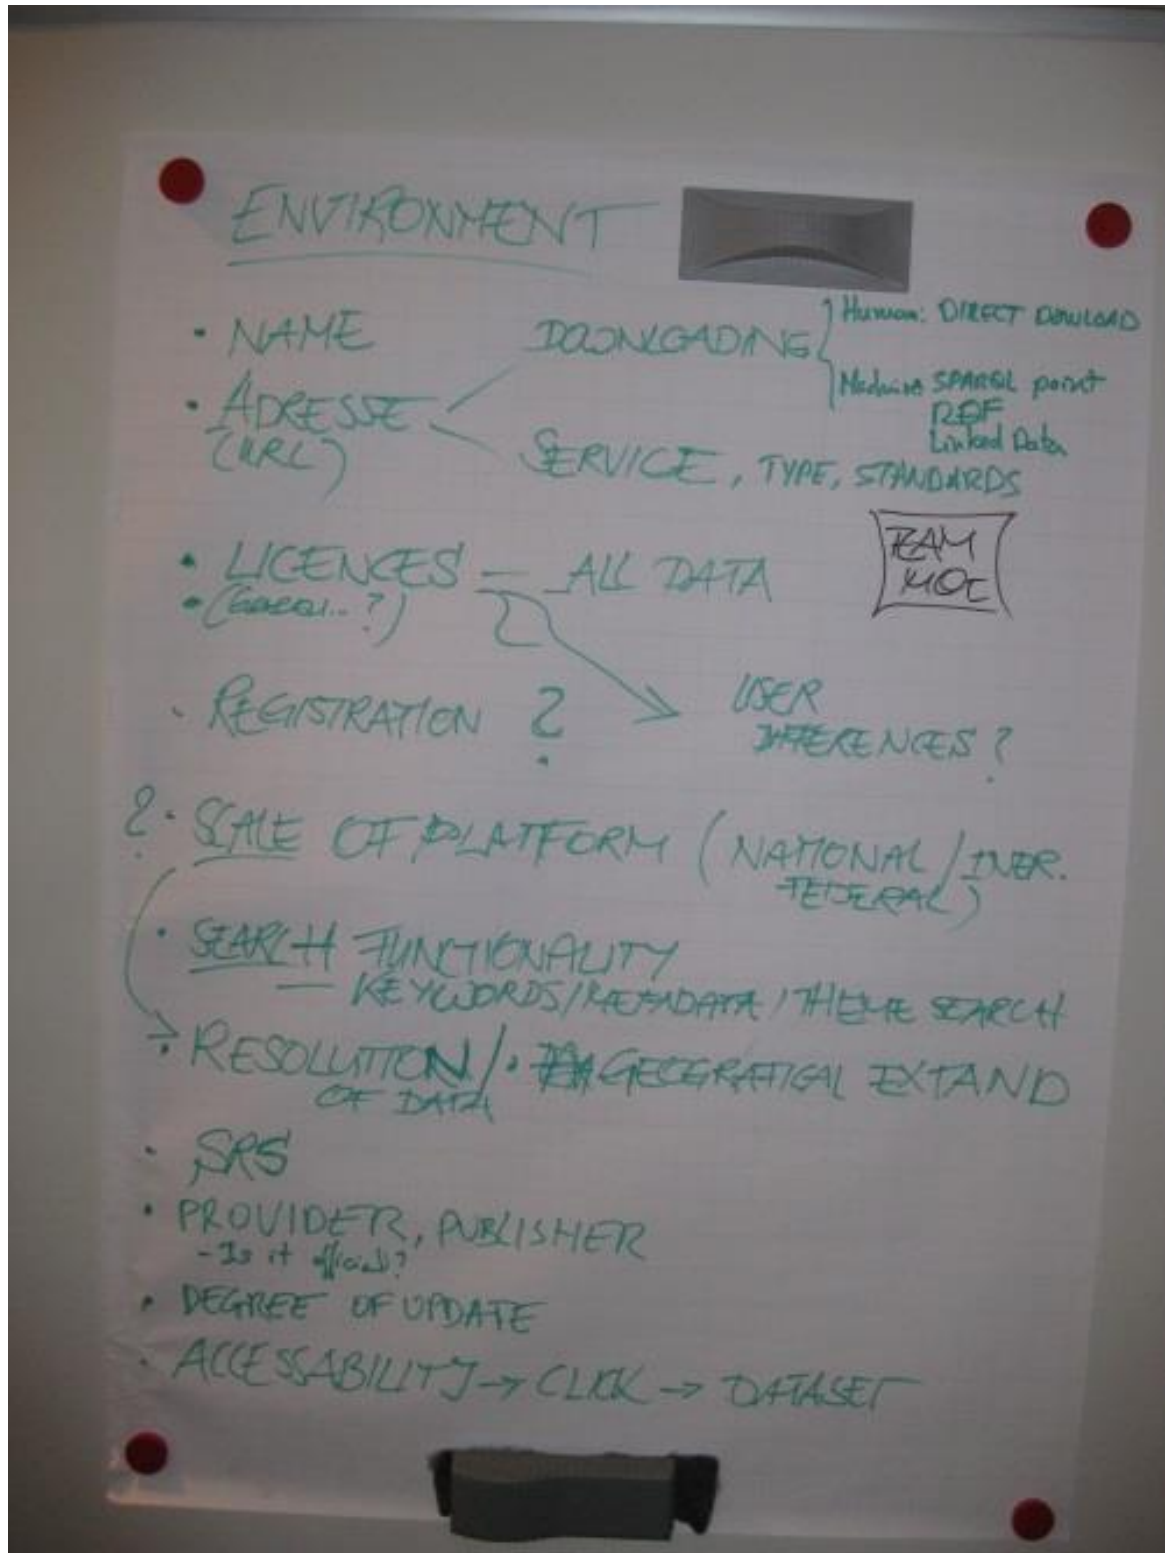 ENVIRONMENT
• NAME
DOWNLOADING
Human: DIRECT DOWNLOAD
Machine SPARQL point
RDF
Linked Data
• ADRESSE
(URL)
SERVICE, TYPE, STANDARDS
• LICENCES — ALL DATA
• REGISTRATION ?
USER
DIFFERENCES ?
? • SCALE OF PLATFORM (NATIONAL / INER.
FEDERAL)
• SEARCH FUNCTIONALITY
— KEYWORDS/METADATA/THEME SEARCH
• RESOLUTION / • GEOGRAFIGAL EXTAND
OF DATA
• SRS
• PROVIDER, PUBLISHER
- Is it official?
• DEGREE OF UPDATE
• ACCESSABILITY → CLICK → DATASET